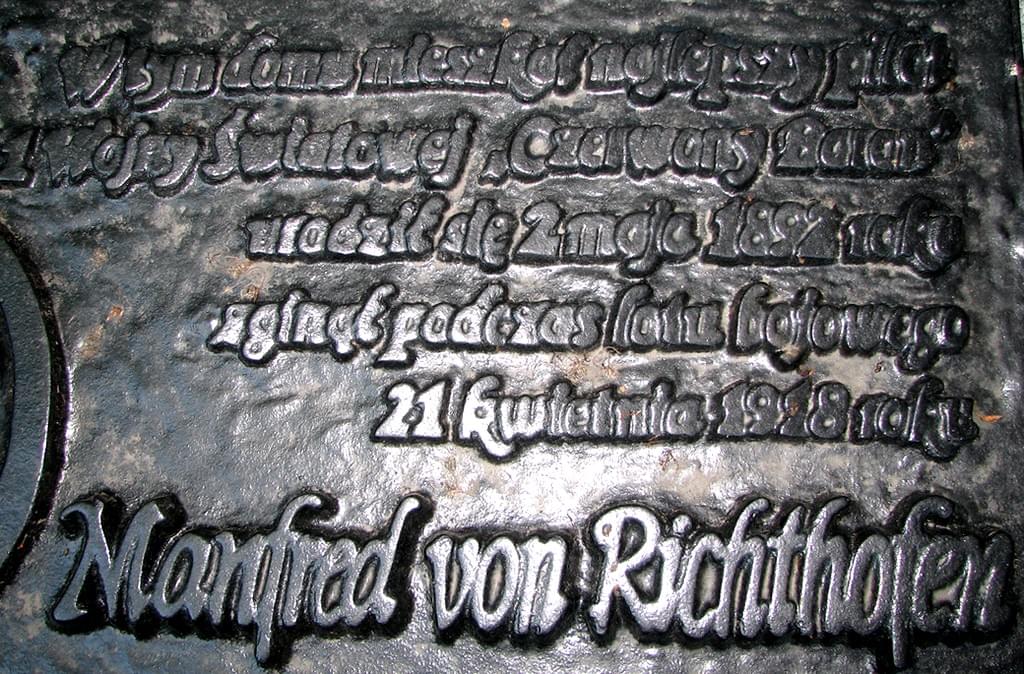 W tym domu mieszkał najlepszy pilot
I Wojny Światowej „Czerwony Baron”
urodził się 2 maja 1892 roku
zginął podczas lotu bojowego
21 kwietnia 1918 roku
Manfred von Richthofen